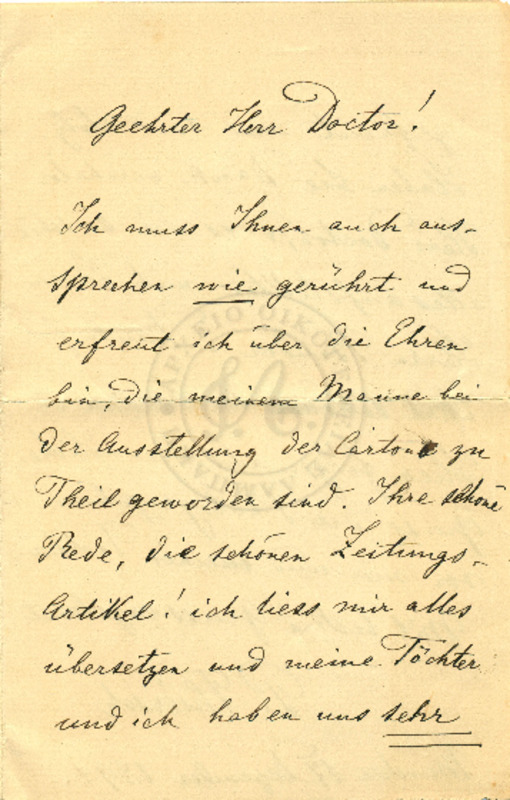 Geehrter Herr Doctor!
Ich muss Ihnen auch aus-
sprechen wie gerührt und
erfreut ich über die Ehren
bin, die meinem Manne bei
der Ausstellung der Cartone zu
Theil geworden sind. Ihre schöne
Rede, die schönen Zeitungs-
Artikel! ich liess mir alles
übersetzen und meine Töchter
und ich haben uns sehr